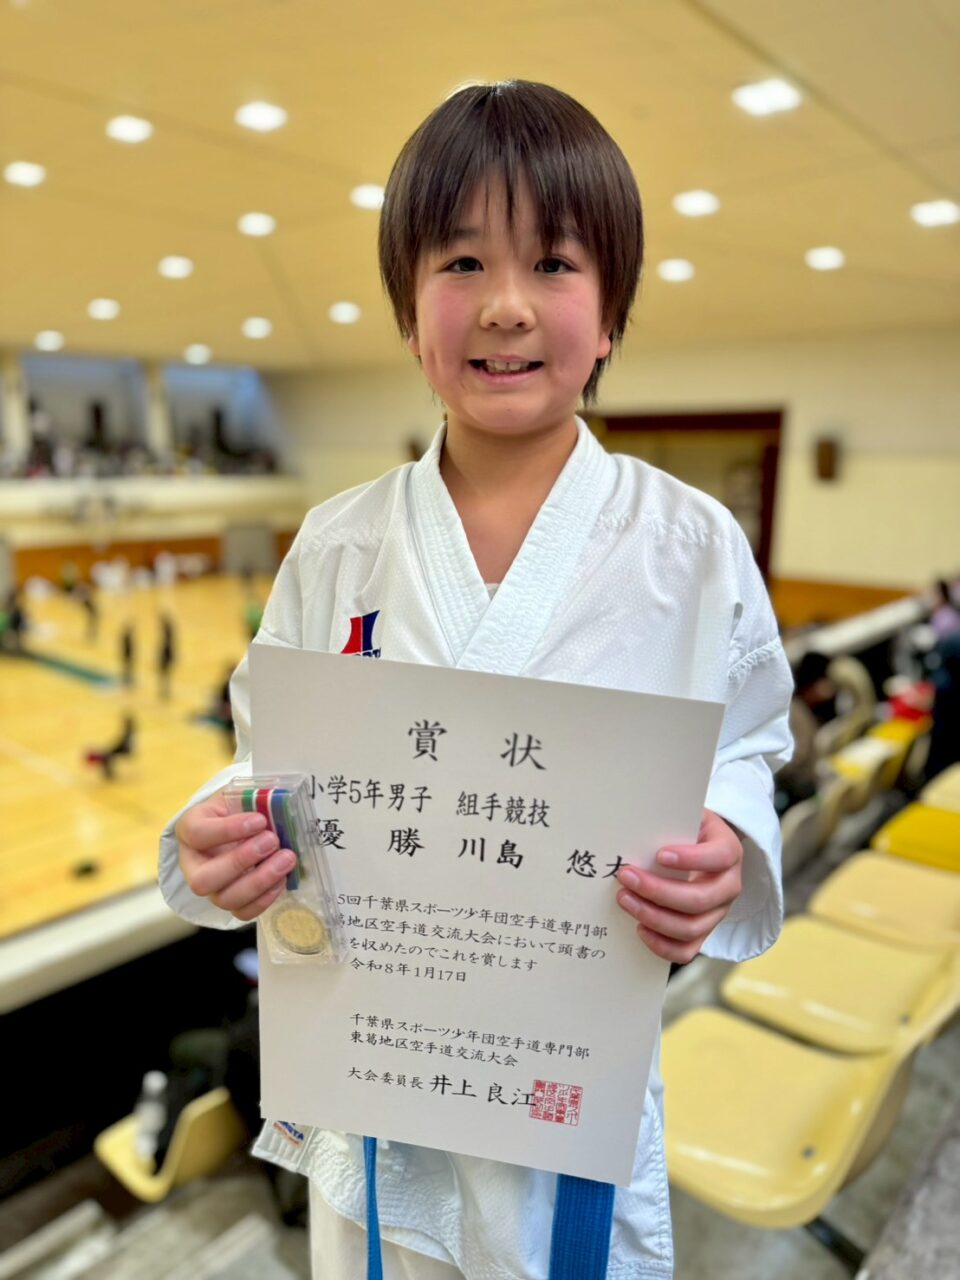 賞状
小学5年男子 組手競技
優勝 川島 悠
5回千葉県スポーツ少年団空手道専門部
葛地区空手道交流大会において頭書の
を収めたのでこれを賞します
令和8年1月17日
千葉県スポーツ少年団空手道専門部
東葛地区空手道交流大会
大会委員長 井上良江